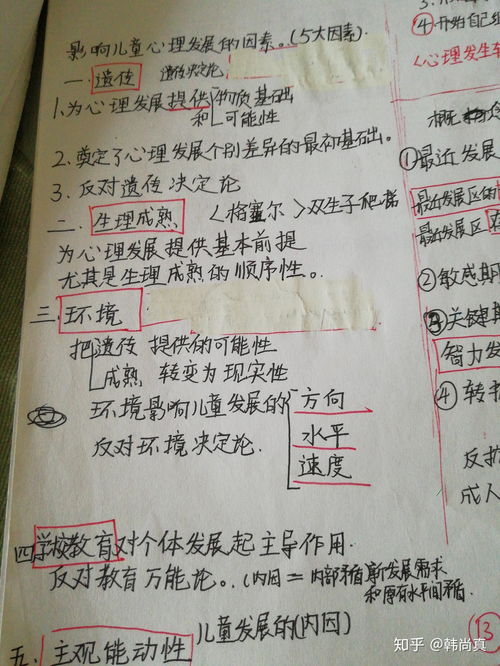 影响儿童心理发展的因素。(5大因素).
一. 遗传 遗传决定论.
1.为心理发展提供 物质基础
和 可能性
2.奠定了心理发展个别差异的最初基础。
3.反对遗传决定论
二. 生理成熟 <格塞尔>双生子爬梯
为心理发展提供基本前提
尤其是生理成熟的顺序性。
三 环境
把 遗传 提供的可能性
成熟 转变为现实性
环境影响儿童发展的 方向
水平
速度
反对环境决定论.
四 学校教育 对个体发展起主导作用.
反对教育万能论。(内因=内部矛盾 新发展需求
和原有水平间矛盾.
五. 主观能动性 儿童发展的(内因)
④开始自己
<心理发生
概
①最近发展
最近发展区的
最近发展区
②敏感期
③关键期
智力发
④转
反
成人
13
知乎 @韩尚真